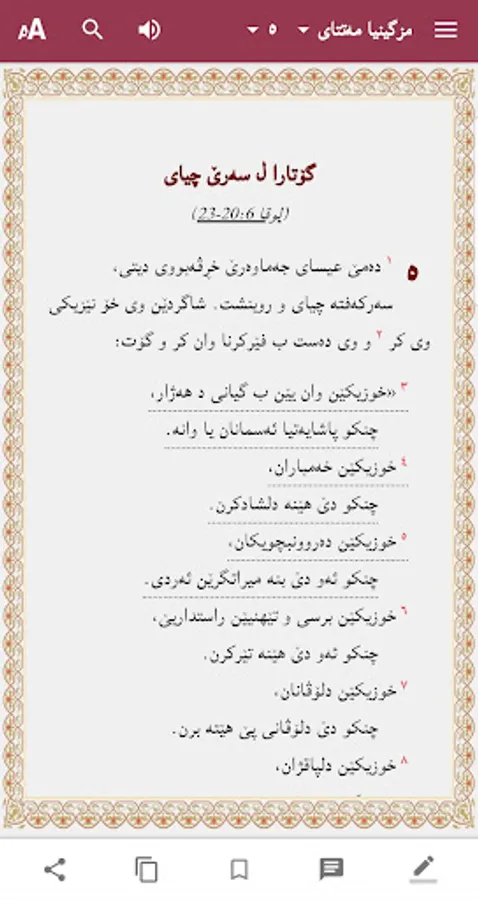 مزگینیا مەتتای ٥
گۆتارا ل سەرێ چیای
(لوقا 6:20-23)
٥ ١ دەمێ عیسای جەماوەرێ خڕڤەبووی دیتی،
سەرکەفتە چیای و روینشت. شاگردێن وی خۆ نێزیکی
وی کر ٢ و وی دەست ب فێرکرنا وان کر و گۆت:
٣ «خوزیکێن وان یێن ب گیانی د هەژار،
چنکو پاشایەتیا ئەسمانان یا وانە.
٤ خوزیکێن خەمباران،
چنکو دێ هێنە دلشادکرن.
٥ خوزیکێن دەروونبچویکان،
چنکو ئەو دێ بنە میراتگرێن ئەردی.
٦ خوزیکێن برسی و تێهنیێن راستداریێ،
چنکو ئەو دێ هێنە تێرکرن.
٧ خوزیکێن دلۆڤانان،
چنکو دێ دلۆڤانی پێ هێتە برن.
٨ خوزیکێن دلپاقژان،